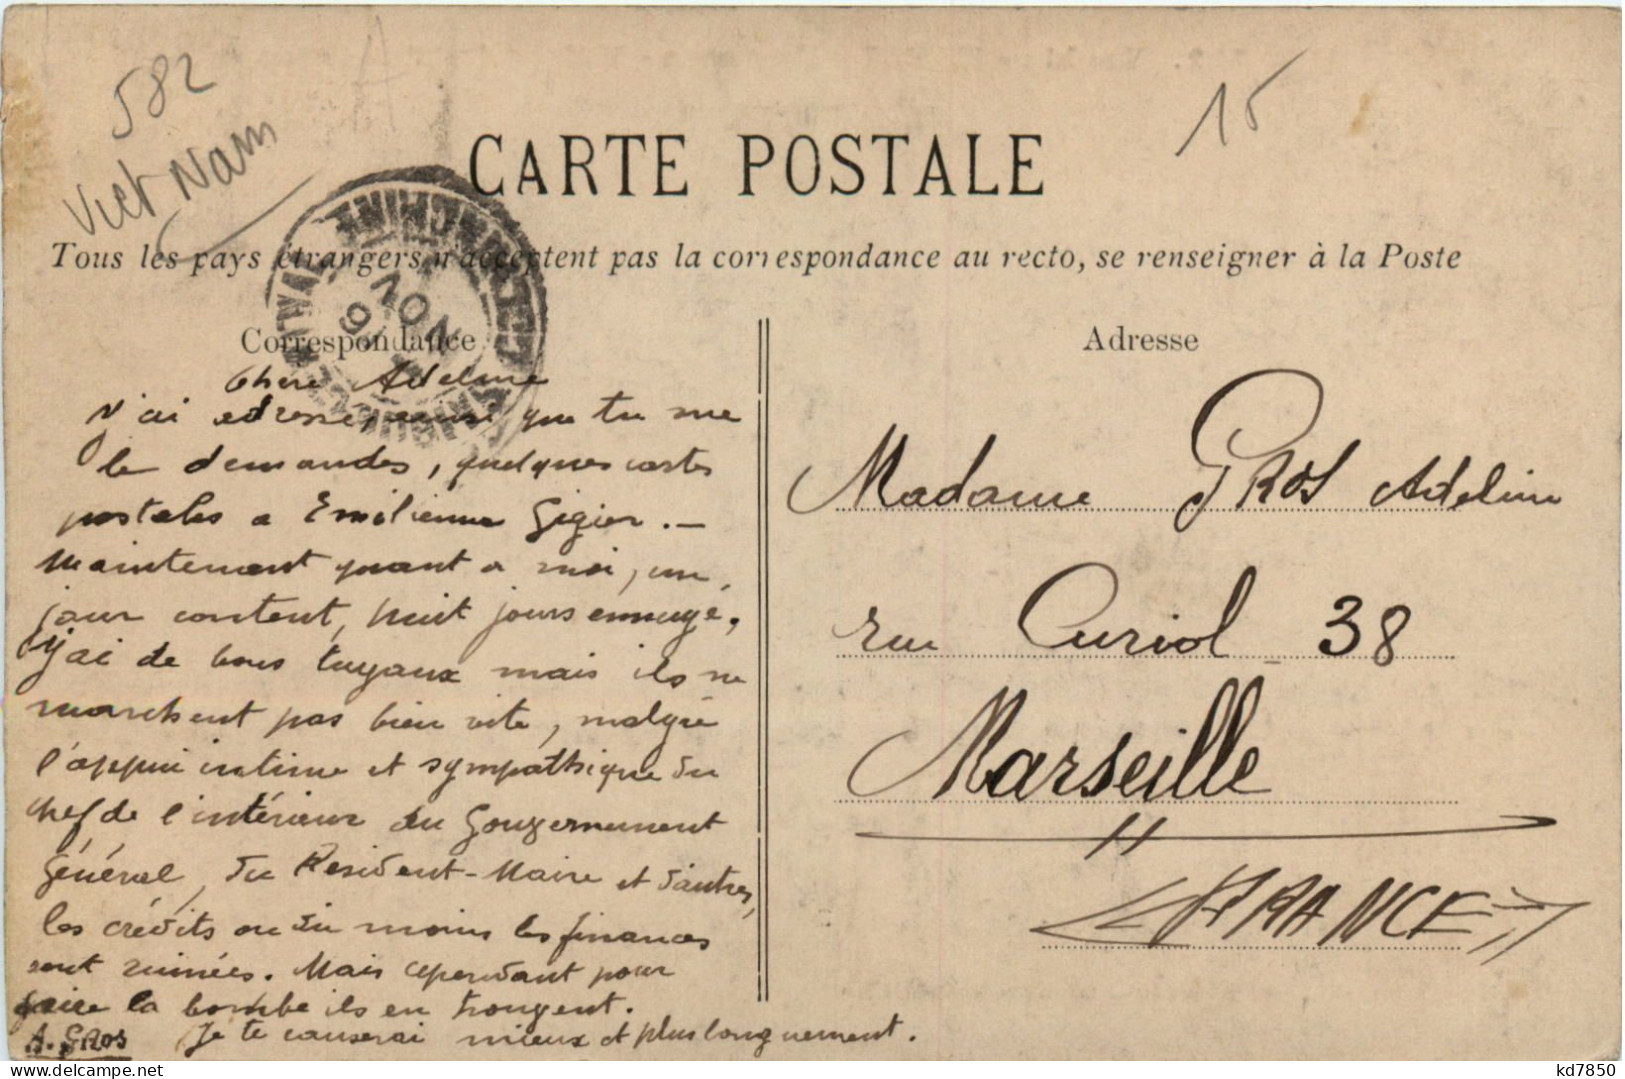 582
Viet Nam
15
CARTE POSTALE
Tous les pays étrangers n'acceptent pas la correspondance au recto, se renseigner à la Poste
Correspondance
Adresse
NOV
Chère Adeline
J'ai adressé, ainsi que tu me
le demandes, quelques cartes
postales a Emilienne Gigier. —
Maintenant quant a moi, un
jour content, huit jours ennuyé,
j'ai de bons tuyaux mais ils ne
marchent pas bien vite, malgré
l'appui intime et sympathique du
chef de l'intérieur du Gouvernement
Général, du Resident-Maire et d'autres,
les crédits ou du moins les finances
sont ruinées. Mais cependant pour
faire la bombe ils en trouvent.
A. GROS Je te causerai mieux et plus longuement.
Madame GROS Adeline
rue Curiol - 38
Marseille
FRANCE
kd7850